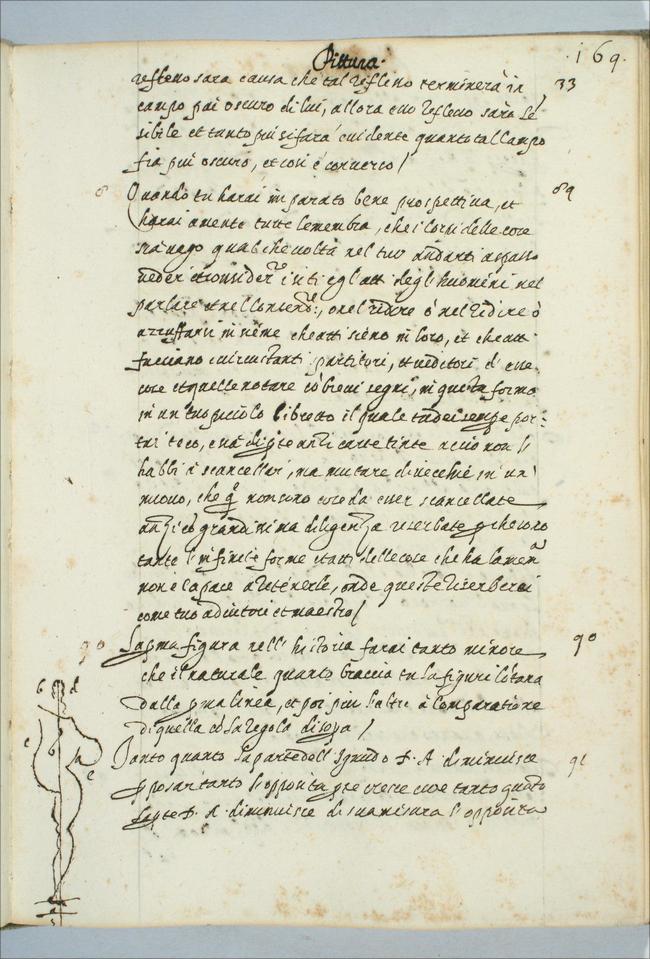 Pittura.
169.
reflesso sara causa che tal reflesso terminerà in
33
campo piu oscuro di lui, allora esso reflesso sarà se
sibile et tanto piu si fara euidente quanto tal campo
fia piu oscuro, et cosi è conuerso /
8
Quando tu harai imparato bene prospettiua, et
89
harai à mente tutte le membra, che i corpi delle cose
sia uago qualche uolta nel tuo andarti a spasso
ueder et considerare i siti e gl'atti degl'huomini nel
parlare et nel contendere, o nel ridere ò nel ridere ò
azzuffarsi insieme che atti sieno in loro, et che atti
facciano i circustanti, partitori, et ueditori d'esse
cose et quelle notare cò breui segni, in questa forma
in un tuo picciolo libretto il quale tu dei sempre por-
tar teco, e sia di carte tinte acciò non l'
habbi à scancellare, ma mutare di uecchie in un
nuouo, che q̃ non sono cose da esser scancellate
anzi cò grandissima diligenza riserbate p che sono
tante l'infinite forme et atti delle cose che ha la men
non è capace à ritenerle, onde queste riserberai
come tuo adiutori et maestro /
90
La pma figura nell'historia farai tanto minore
90
che il naturale quanto braccia tu la figuri lòtana
dalla pma linea, et poi piu l'altre à comparatione
di quella cò la regola di sopra /
Tanto quanto la parte dell'Ignudo d. A. diminuisce
91
p posar tanto l'opposita pte cresce cioe tanto quãto
la pte d. A. diminuisce di sua misura l'opposita